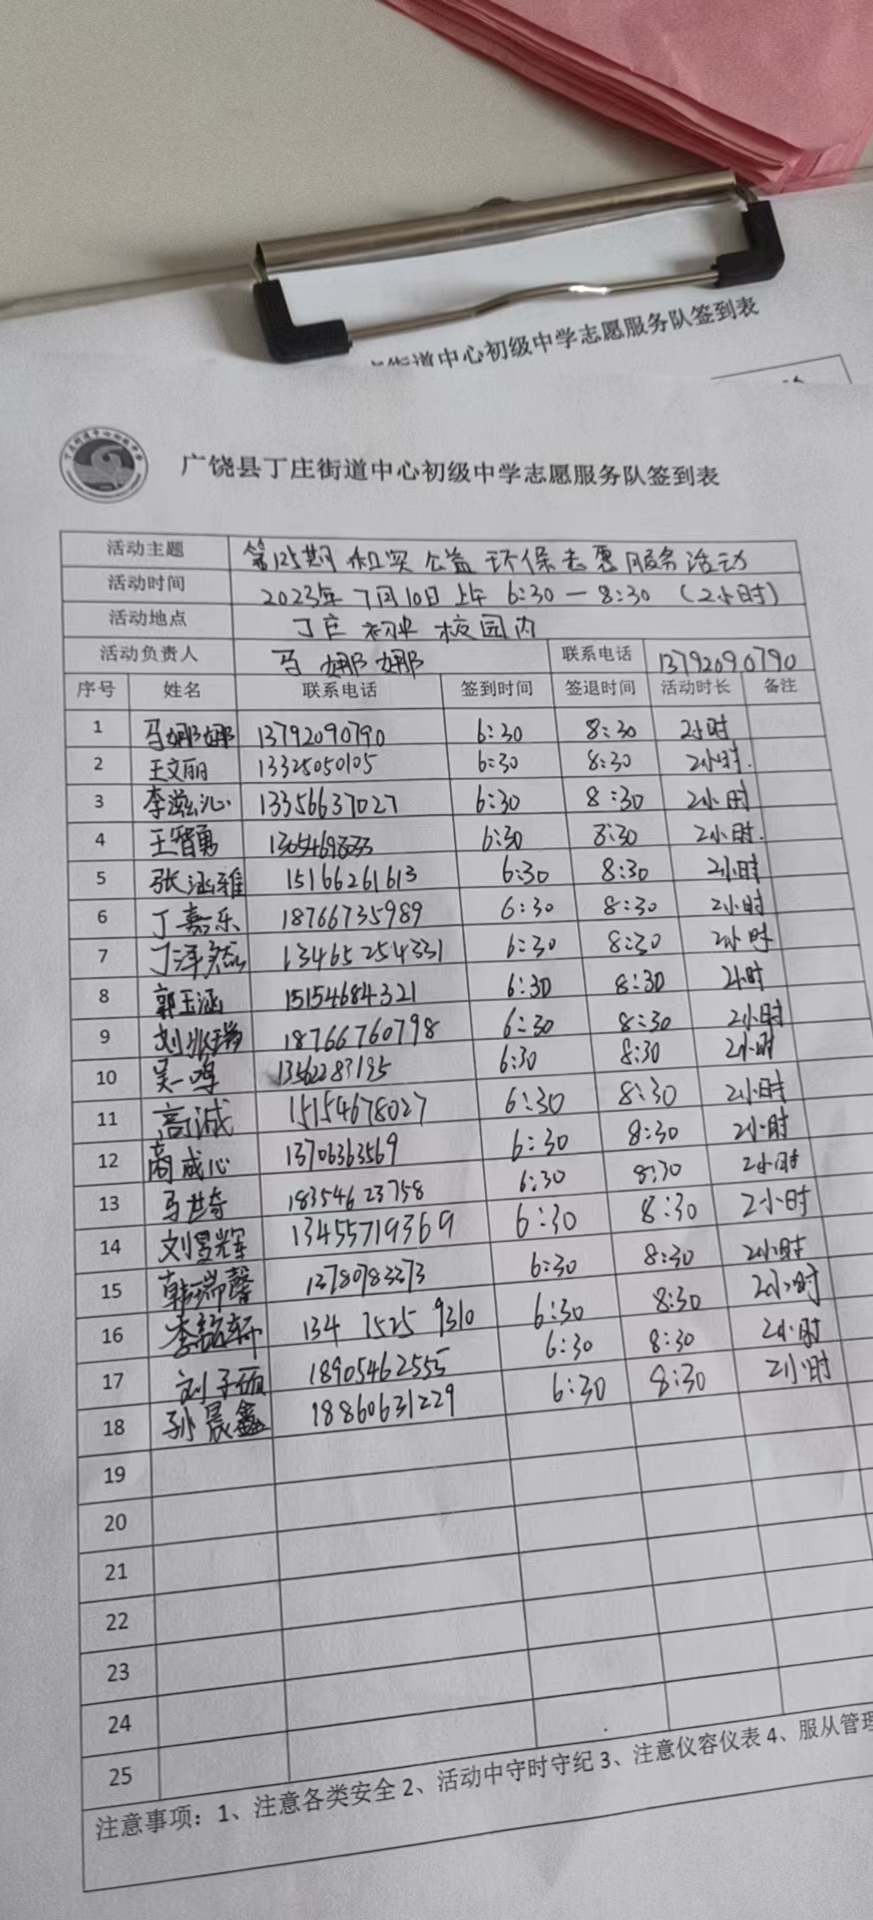 街道中心初级中学志愿服务队签到表
广饶县丁庄街道中心初级中学志愿服务队签到表
活动主题 第125期 和实 公益 环保志愿服务活动
活动时间 2023年7月10日上午 6:30—8:30（2小时）
活动地点 丁庄初中校园内
活动负责人 马娜娜 联系电话 13792090790
序号 姓名 联系电话 签到时间 签退时间 活动时长 备注
1 马娜娜 13792090790 6:30 8:30 2小时
2 王文丽 13325050105 6:30 8:30 2小时.
3 李滋沁 13356637027 6:30 8:30 2小时
4 王智勇 6:30 8:30 2小时.
5 张涵雅 15166261613 6:30 8:30 2小时
6 丁嘉乐 18766735989 6:30 8:30 2小时
7 丁泽然 13465254331 6:30 8:30 2小时
8 郭玉涵 15154684321 6:30 8:30 2小时
9 18766760798 6:30 8:30 2小时
10 吴一鸣 6:30 8:30 2小时
11 高诚 15154678027 6:30 8:30 2小时
12 商成心 13706363569 6:30 8:30 2小时
13 马世奇 18354623758 6:30 8:30 2小时
14 刘昱辉 13455719369 6:30 8:30 2小时
15 韩瑞馨 13780783373 6:30 8:30 2小时
16 李铭轩 134 7525 9310 6:30 8:30 2小时
17 刘子硕 18905462555 6:30 8:30 2小时
18 孙晨鑫 18860631229 6:30 8:30 2小时
19
20
21
22
23
24
25
注意事项：1、注意各类安全 2、活动中守时守纪 3、注意仪容仪表 4、服从管理